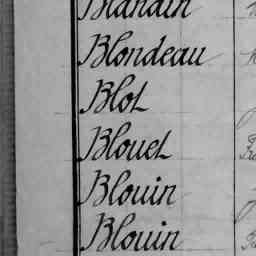 Blandin
Blondeau
Blot
Blouet
Blouin
Blouin